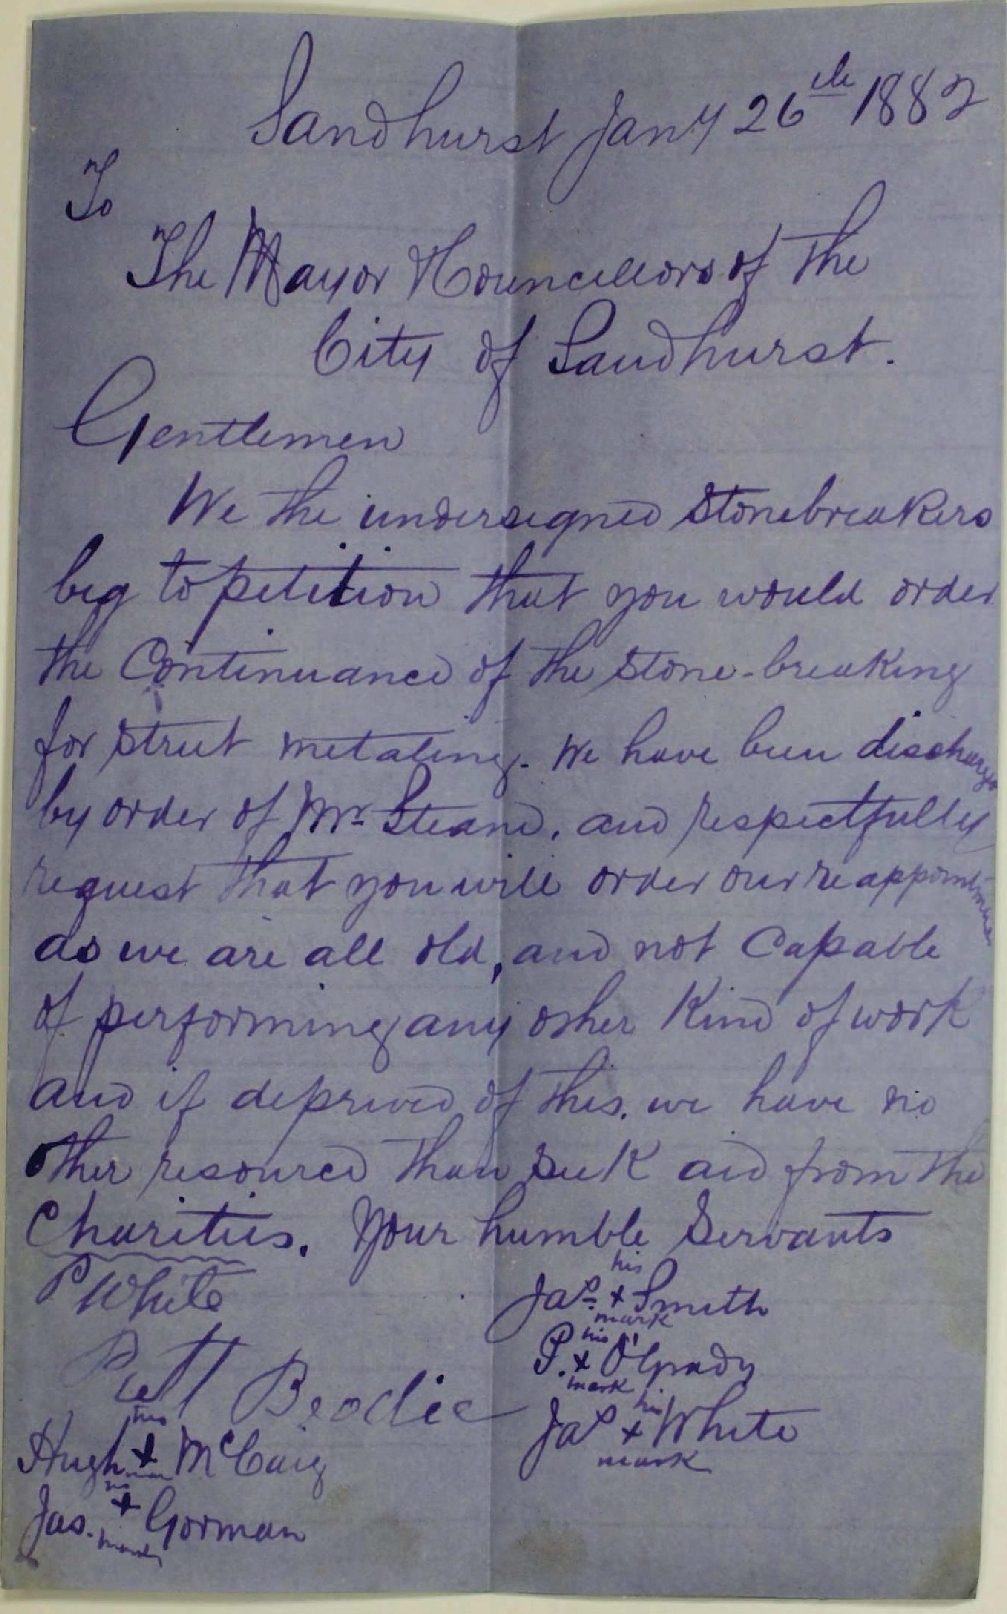 Sandhurst Jany 26th 1882
To
The Mayor & Councillors of the
City of Sandhurst.
Gentlemen
We the undersigned Stonebreakers
beg to petition that you would order
the Continuance of the Stone-breaking
for Street metaling. We have been discharged
by order of Mr Steane, and respectfully
request that you will order our reappointment
as we are all old, and not Capable
of performing any other Kind of work
and if deprived of this, we have no
other resource than seek aid from the
Charities. Your humble Servants
P White
Brodie
his
Hugh + McCaig
Jas. + Gorman
mark
his
Jas + Smith
mark
his
P. + O'Grady
mark
his
Jas + White
mark